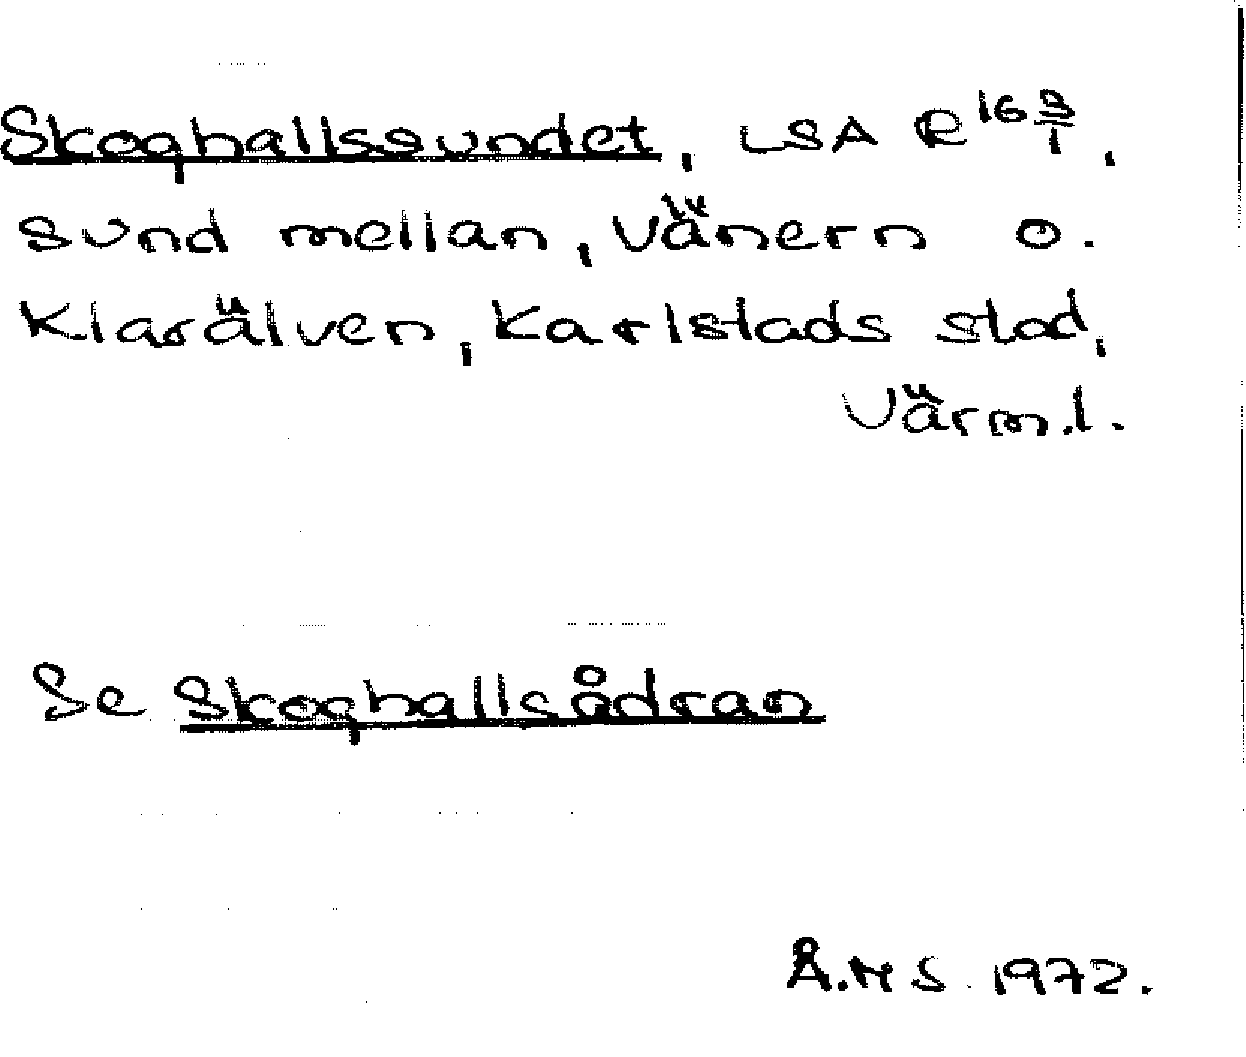 Skoghallssundet, LSA R16 9/1,
sund mellan, Vänern o.
Klarälven, Karlstads stad,
Värml.
Se Skoghallsådran
Å.H S. 1972.